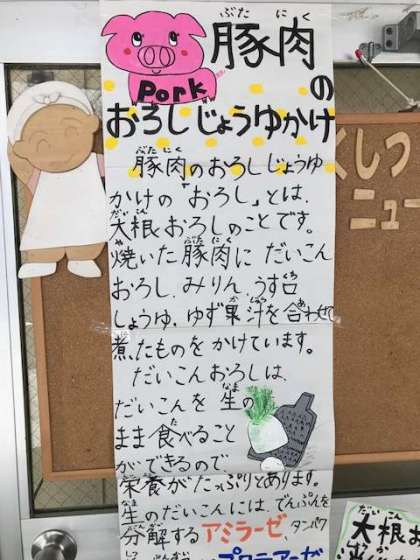 Pork
豚肉
の
おろしじょうゆかけ
豚肉のおろしじょうゆ
かけの「おろし」とは、
大根おろしのことです。
焼いた豚肉に だいこん
おろし、みりん、うす口
しょうゆ、ゆず果汁を合わせて
煮たものをかけています。
だいこんおろしは、
だいこんを生の
まま食べること
ができるので、
栄養がたっぷりとあります。
生のだいこんには、でんぷんを
分解するアミラーゼ、タンパク
くしつ
ニュー
大根